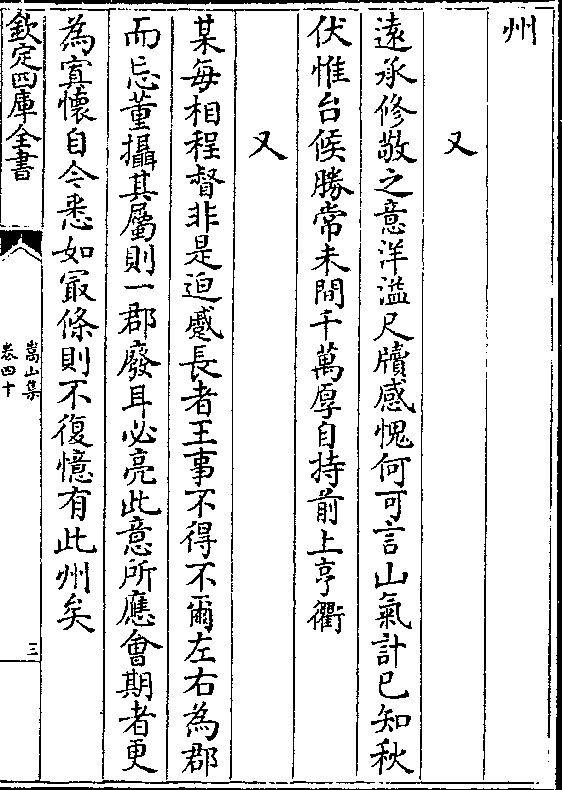 州
又
遠承修敬之意洋溢尺牘感愧何可言山氣計已知秋
伏惟台候勝常未間千萬厚自持前上亨衢
又
某每相程督非是迫蹙長者王事不得不爾左右為郡
而忘董攝其屬則一郡廢耳必亮此意所應會期者更
為寘懷自今悉如冣條則不復憶有此州矣
欽定四庫全書
嵩山集
卷四十
三